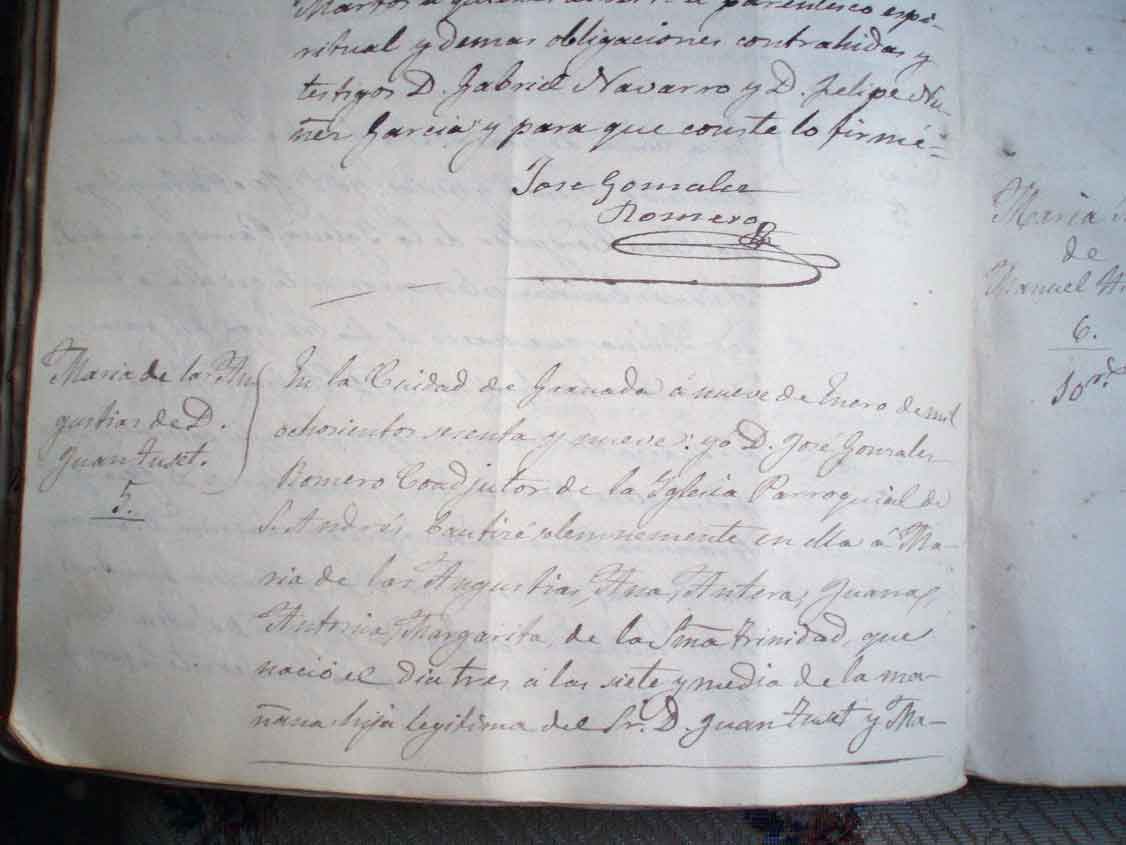 Martos á quienes advertí el parentesco espi-
ritual y demas obligaciones contrahidas y
testigos D. Gabriel Navarro y D. Felipe Nu-
ñez Garcia; y para que conste lo firmé=
Jose Gonzalez
Romero
Maria de las An
gustias de D.
Juan Tuset.
5.
En la Cuidad de Granada á nueve de Enero de mil
ochocientos sesenta y nueve: yo D. José Gonzalez
Romero Coadjutor de la Yglesia Parroquial de
S. Andrés, bautizé solemnemente en ella á Ma-
ria de las Angustias, Ana, Antera, Juana,
Antonia, Margarita, de la Sma Trinidad, que
nació el dia tres á las siete y media de la ma-
ñana hija legitima del Sr. D. Juan Tuset y Ma-
Maria
de
Manuel
6.
10 rs.